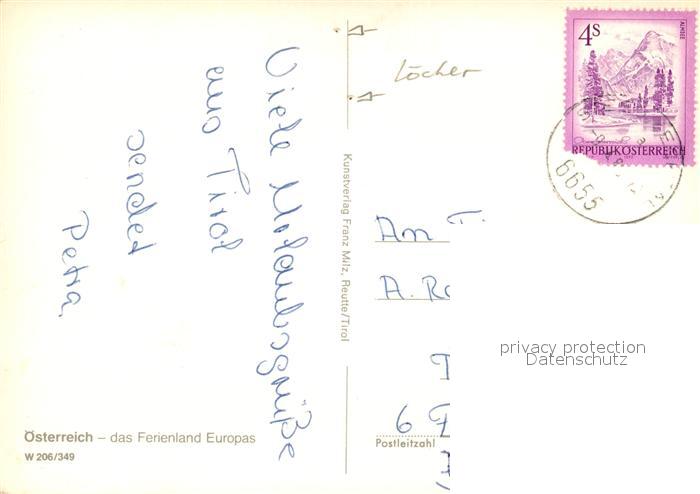 Viele Urlaubsgrüße
aus Tirol
sendet
Petra.
Löcher
4S
ALMSEE
REPUBLIK ÖSTERREICH
6655
Kunstverlag Franz Milz, Reutte/Tirol
An T.
A. Ro
6
Postleitzahl
privacy protection
Datenschutz
Österreich – das Ferienland Europas
W 206/349